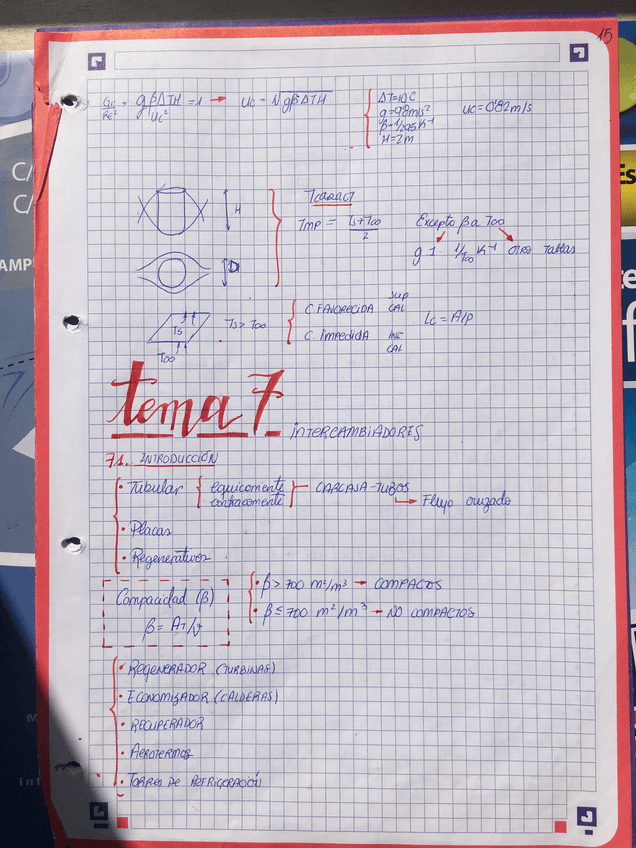 15
Gr/Re² = gβΔTH/Uc² = 1 → Uc = √gβΔTH
ΔT=10C
g=9'8m/s²
β=1/295 K⁻¹
H=2m
Uc=0'82m/s
H
D
Tcaract
Tmp = Ts+T∞/2
Excepto β a T∞
g 1 1/T∞ K⁻¹ otro tablas
Ts
T∞
Ts > T∞
C. FAVORECIDA SUP CAL
C. impedida INF CAL
Lc = A/p
tema 7
INTERCAMBIADORES
7.1. INTRODUCCIÓN
• Tubular
equicorriente
contracorriente
CARCASA-TUBOS
→ Flujo cruzado
• Placas
• Regenerativos
Compacidad (β)
β = AT/V
• β > 700 m²/m³ → COMPACTOS
• β ≤ 700 m²/m³ → NO COMPACTOS
• REGENERADOR (TURBINAS)
• ECONOMIZADOR (CALDERAS)
• RECUPERADOR
• AEROTERMOS
• TORRES DE REFRIGERACIÓN
C/
C/
AMP
Es
te
f
inf